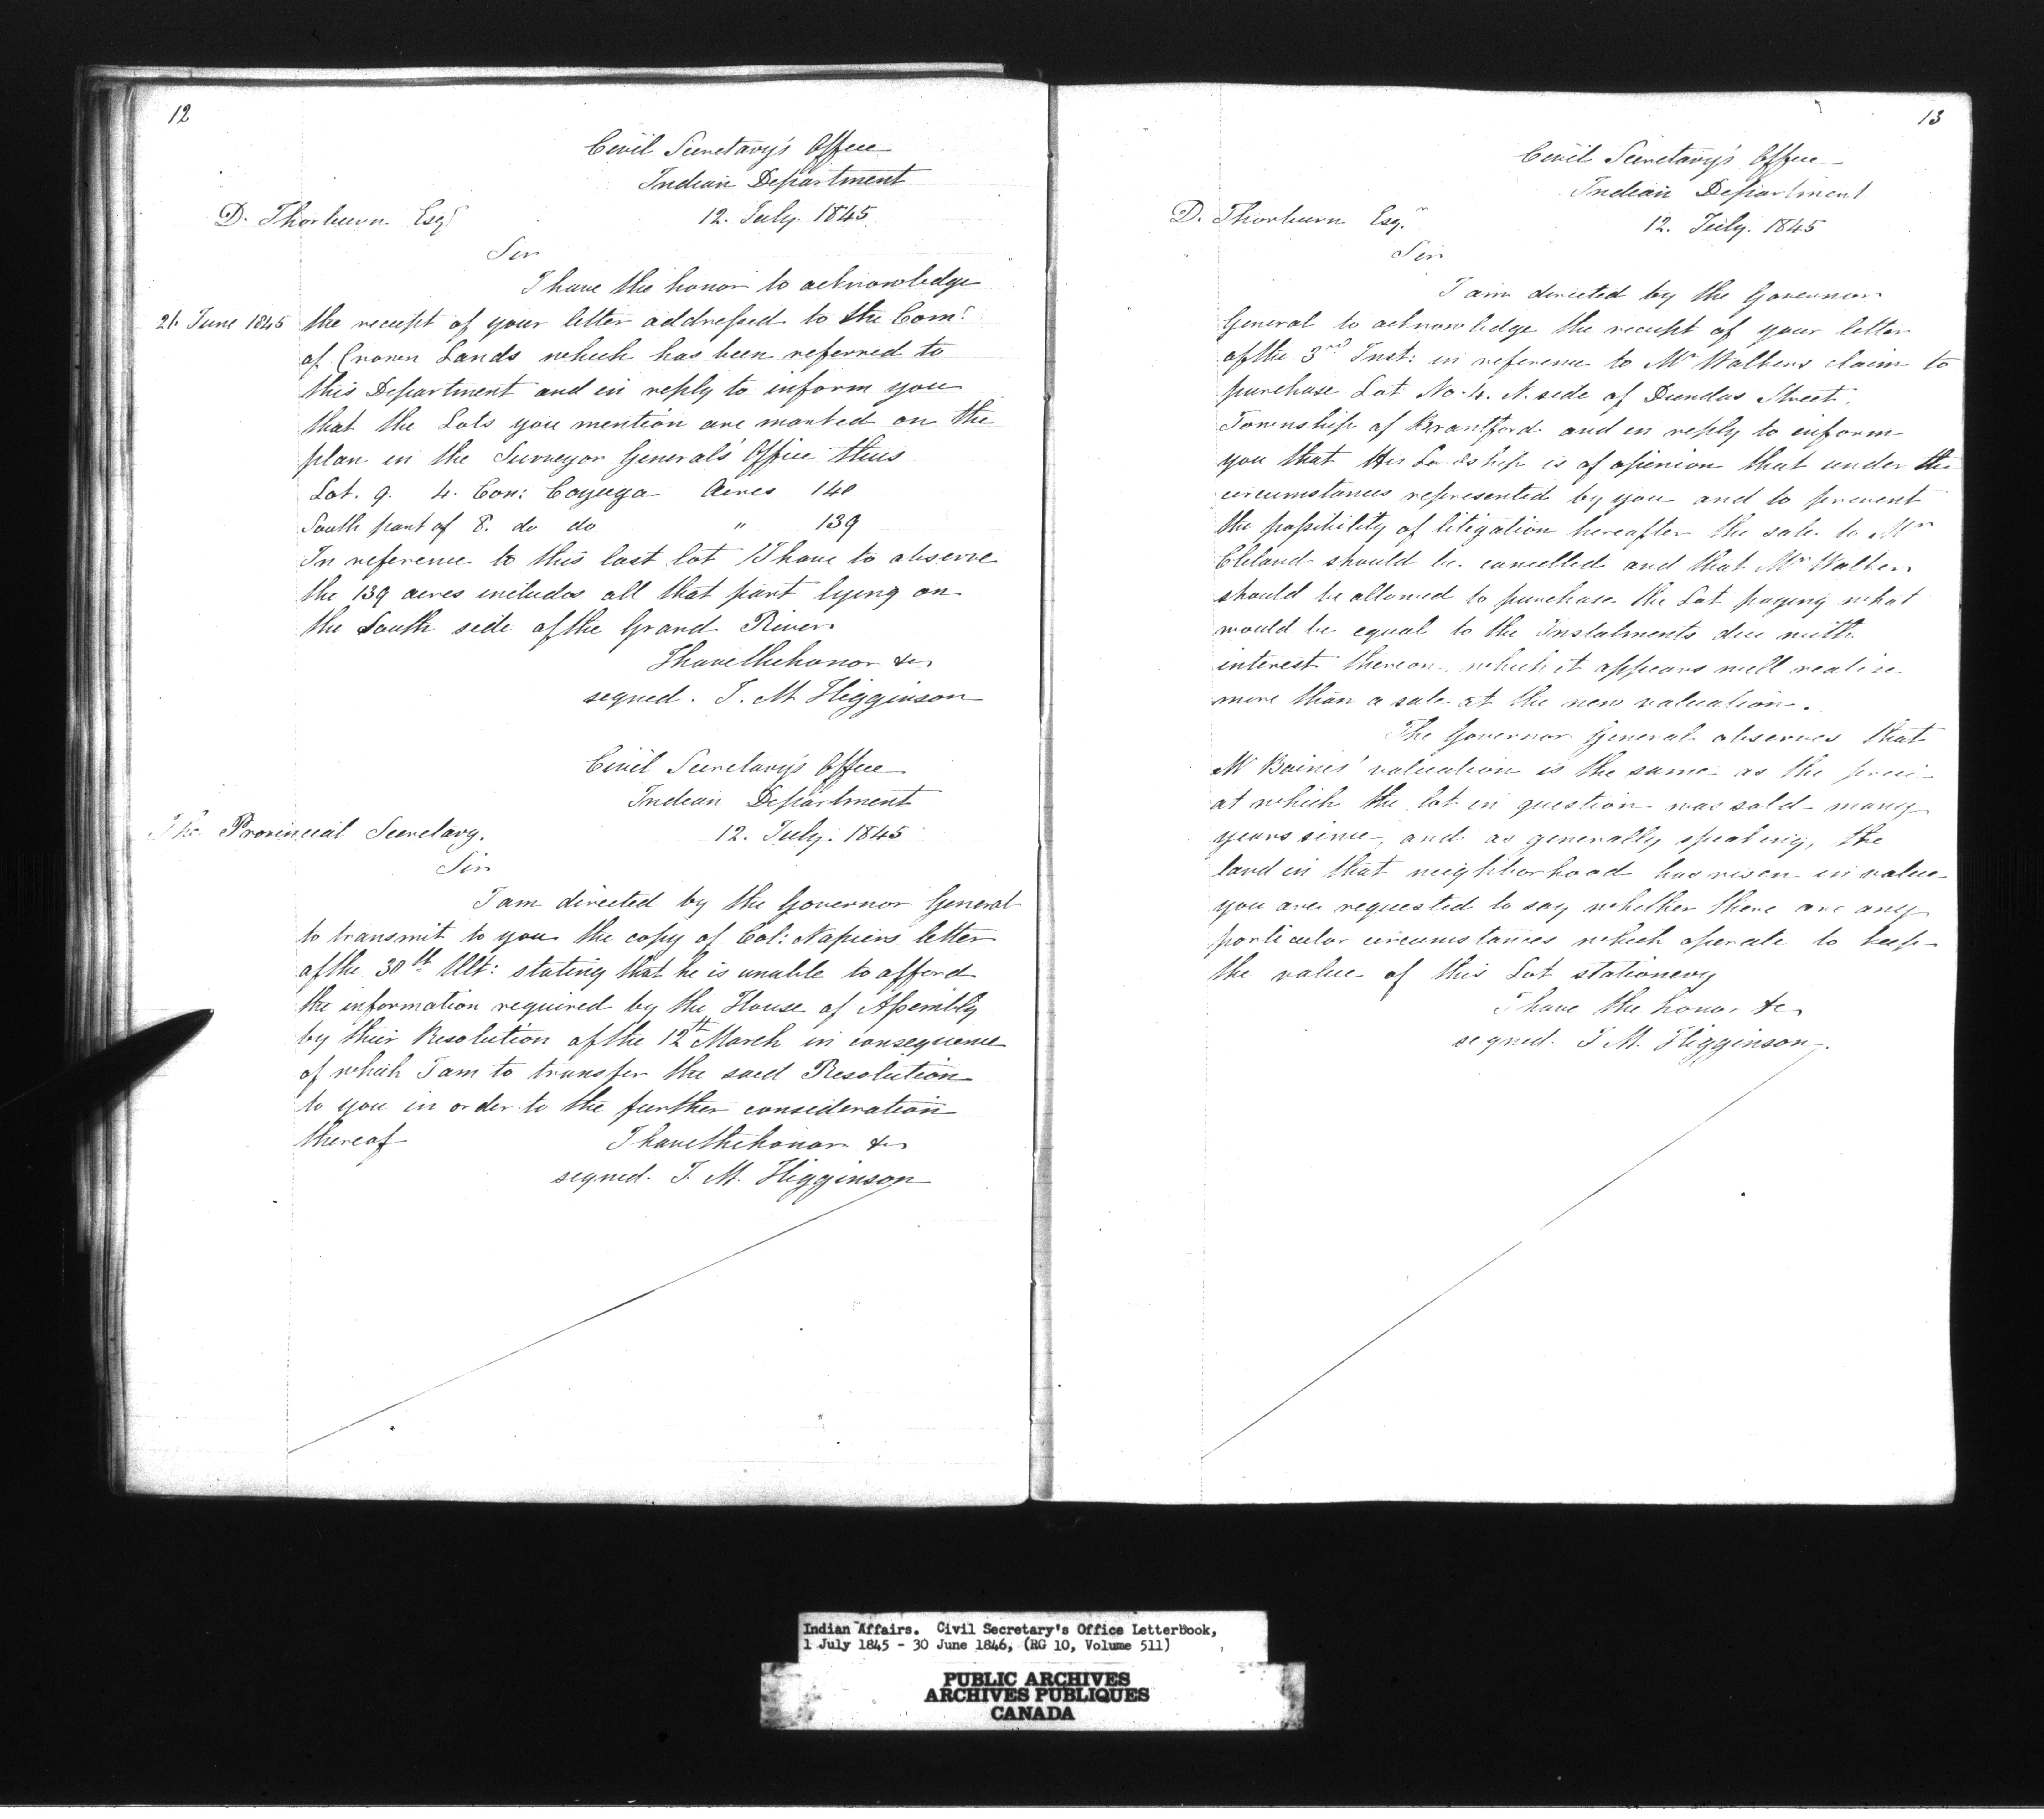 12
Civil Secretary's Office
Indian Department
D. Thorburn Esqr 12. July. 1845
Sir
I have the honor to acknowledge
21 June 1845 the receipt of your letter addressed to the Comr
of Crown Lands which has been referred to
this Department and in reply to inform you
that the Lots you mention are marked on the
plan in the Surveyor General's Office thus
Lot. 9. 4. Con: Cayuga Acres 140
South part of 8. do do " 139
In reference to this last lot I have to observe
the 139 acres includes all that part lying on
the South side of the Grand River
I have the honor &c
signed. J. M. Higginson
Civil Secretary's Office
Indian Department
The Provincial Secretary. 12. July. 1845
Sir
I am directed by the Governor General
to transmit to you the copy of Col: Napiers letter
of the 30th Ult: stating that he is unable to afford
the information required by the House of Assembly
by their Resolution of the 12th March in consequence
of which I am to transfer the said Resolution
to you in order to the further consideration
thereof I have the honor &c
signed. J. M. Higginson
13
Civil Secretary's Office
Indian Department
D. Thorburn Esqr 12. July. 1845
Sir
I am directed by the Governor
General to acknowledge the receipt of your letter
of the 3rd Inst: in reference to Mr Walkers claim to
purchase Lot No. 4. N. side of Dundas Street.
Township of Brantford and in reply to inform
you that His Lordship is of opinion that under the
circumstances represented by you and to prevent
the possibility of litigation hereafter the sale to Mr
Cleland should be cancelled and that Mr Walker
should be allowed to purchase the Lot paying what
would be equal to the Instalments due with
interest thereon, which it appears will realise
more than a sale at the new valuation.
The Governor General observes that
Mr Baines' valuation is the same as the price
at which the lot in question was sold many
years since, and as generally speaking, the
land in that neighborhood has risen in value
you are requested to say whether there are any
particular circumstances which operate to keep
the value of this Lot stationery
I have the honor &c
signed. J. M. Higginson.
Indian Affairs. Civil Secretary's Office LetterBook,
1 July 1845 - 30 June 1846, (RG 10, Volume 511)
PUBLIC ARCHIVES
ARCHIVES PUBLIQUES
CANADA